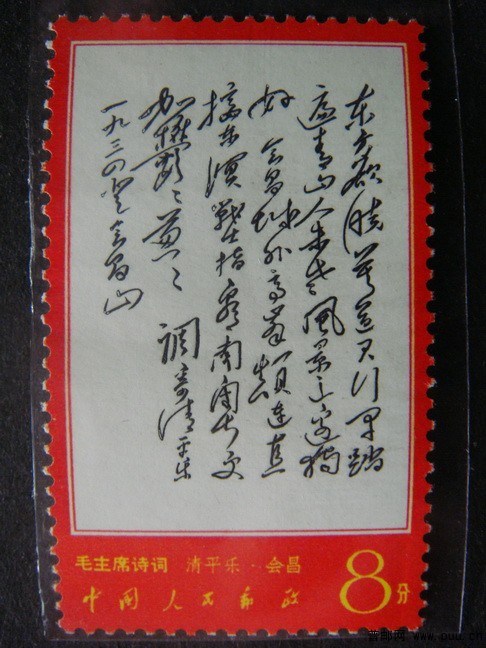 东方欲晓莫道君行早踏
遍青山人未老風景这边独
好会昌城外高峯颠连直
接东溟戰士指看南粤更
加鬱〻葱〻 调寄清平乐
一九三四登会昌山
毛主席诗词 清平乐·会昌
中国人民邮政
8分